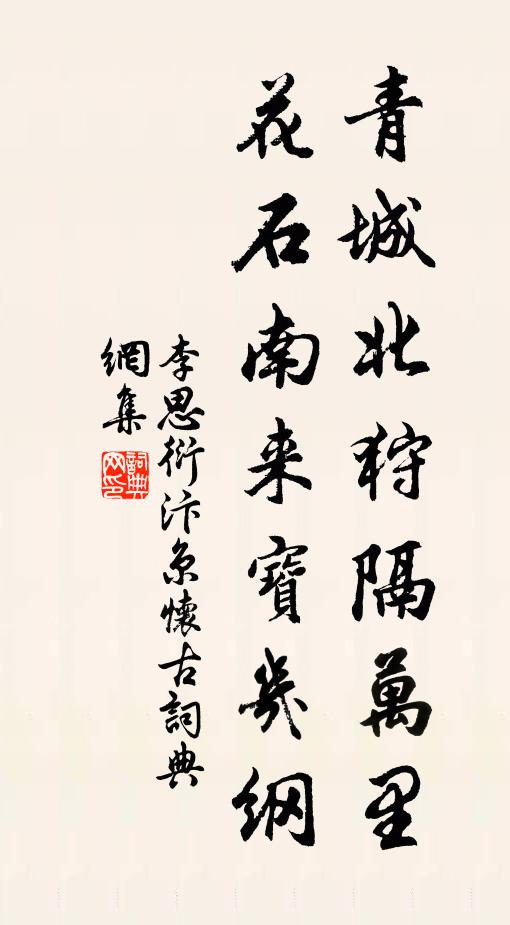 青城北狩隔萬里
花石南来寶幾綱
李思衍汴京懷古詞典
網集
詞典網印